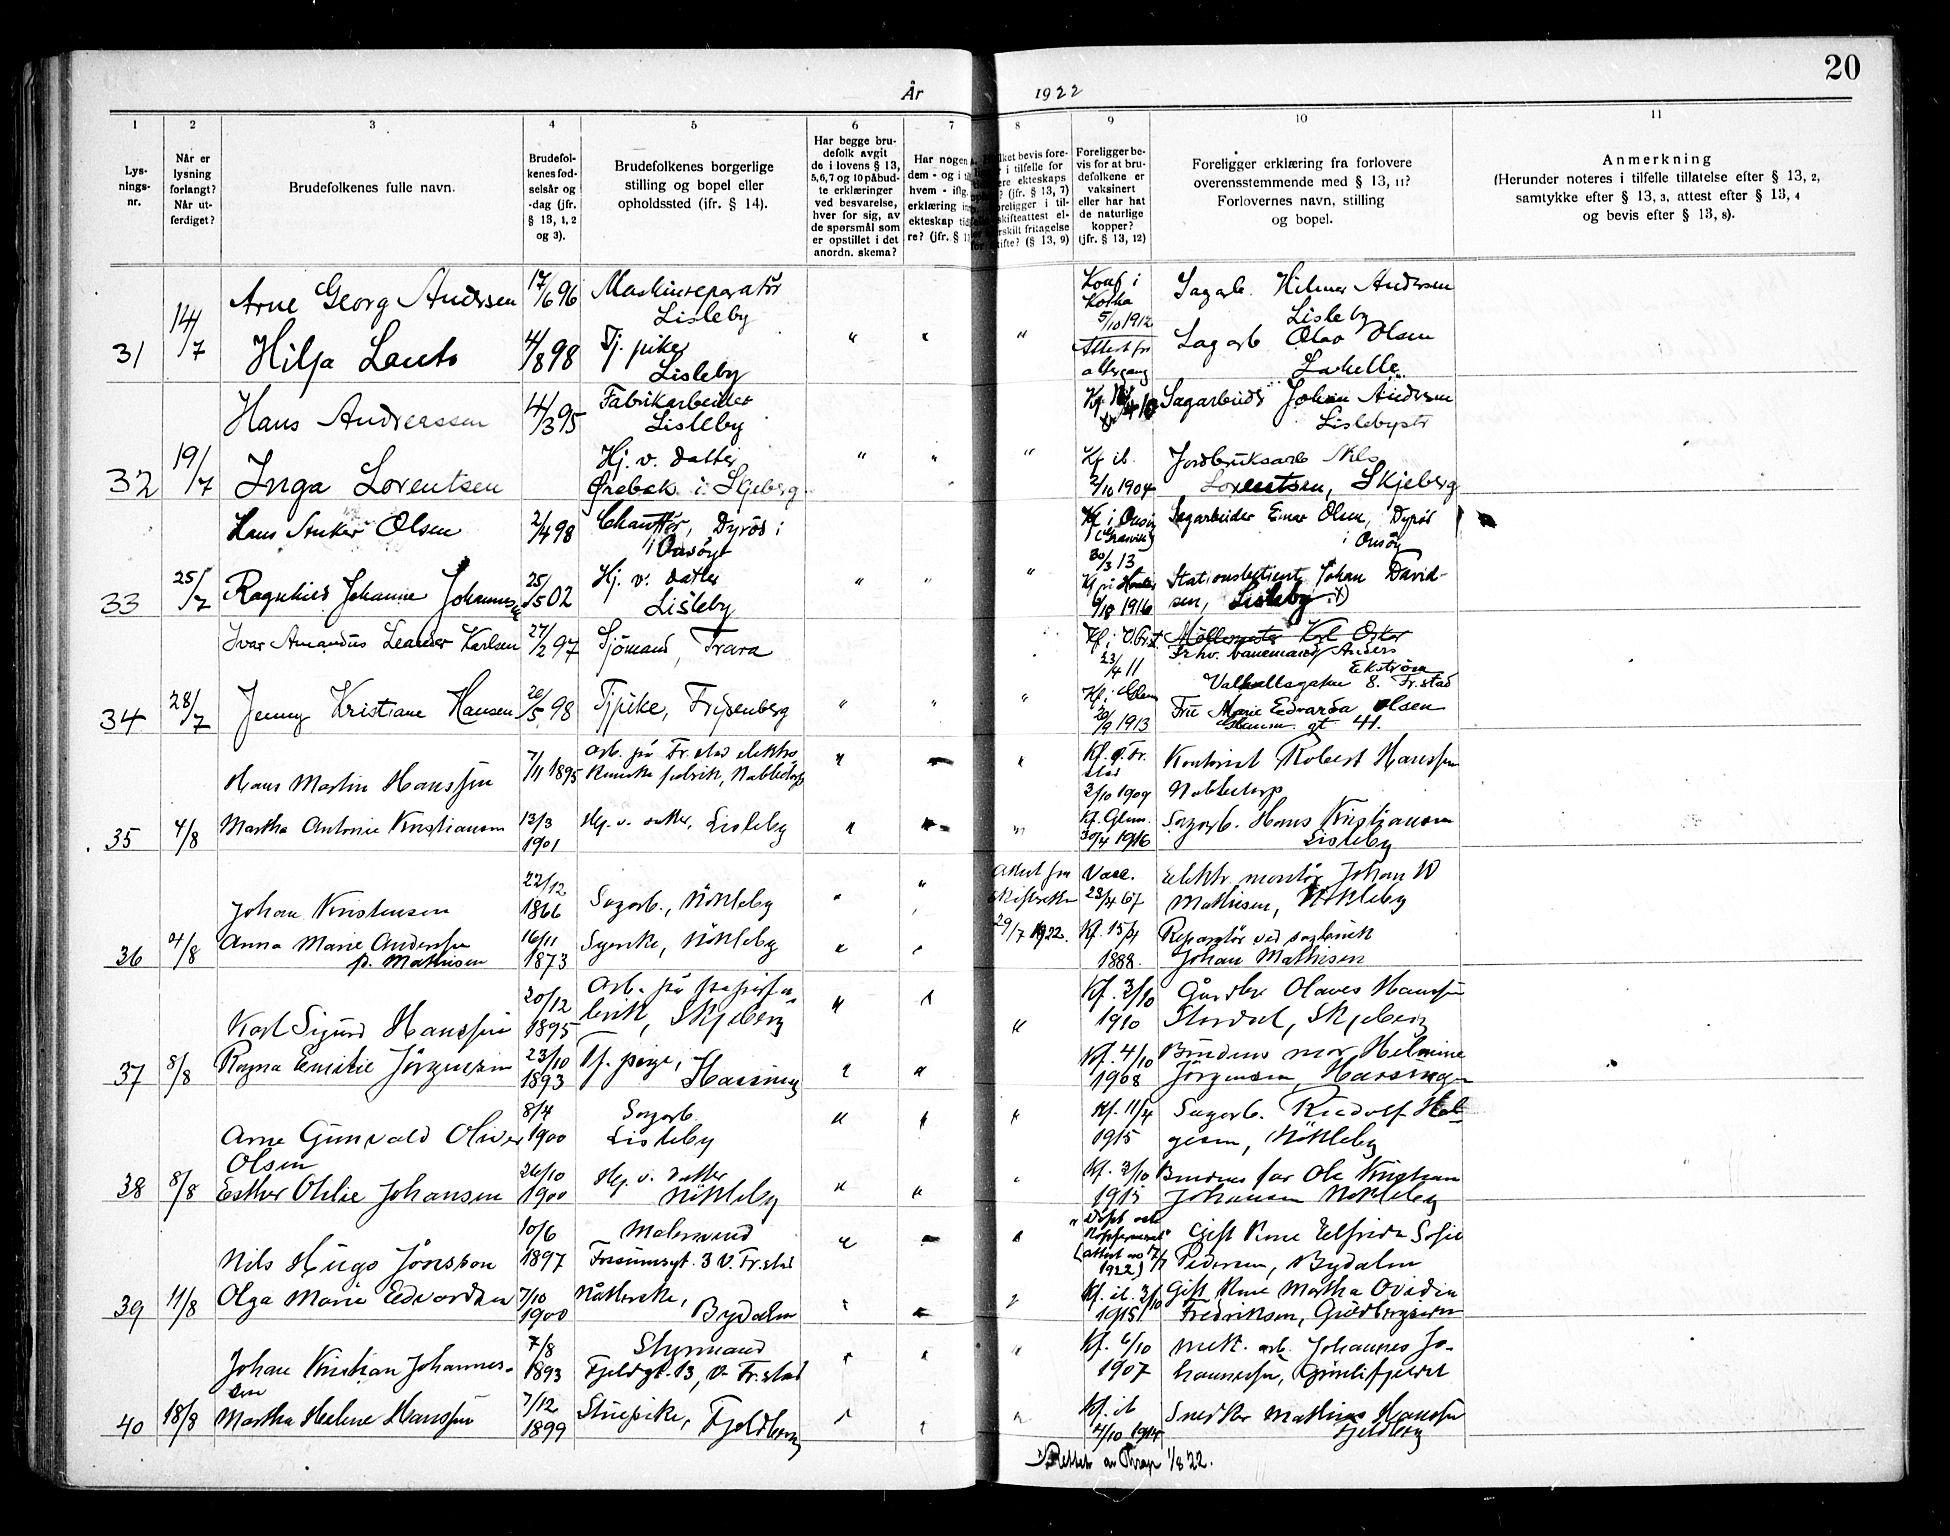 20
År 1922
1 2 3 4 5 6 7 8 9 10 11
Lys-
nings-
nr.
Når er
lysning
forlangt?
Når ut-
ferdiget?
Brudefolkenes fulle navn.
Brudefol-
kenes fød-
selsår og
-dag (jfr.
§ 13, 1, 2
og 3).
Brudefolkenes borgerlige
stilling og bopel eller
opholdssted (ifr. § 14).
Har begge bru-
defolk avgit
de i lovens § 13,
5, 6, 7 og 10 påbud-
te erklæringer
ved besvarelse,
hver for sig, av
de spørsmål som
er opstillet i det
anordn. skema?
Har nogen
dem - og i
hvem - iflg.
erklæring
ekteskap
re? (jfr. §
bevis fore-
i tilfelle for
ekteskaps
? (jfr. § 13, 7)
i til-
skifteattest el-
fritagelse
? (§ 13, 9)
Foreligger be-
vis for at bru-
defolkene er
vaksinert
eller har hat
de naturlige
kopper?
(jfr. § 13, 12)
Foreligger erklæring fra forlovere
overensstemmende med § 13, 11?
Forlovernes navn, stilling
og bopel.
Anmerkning
(Herunder noteres i tilfelle tillatelse efter § 13, 2,
samtykke efter § 13, 3, attest efter § 13, 4
og bevis efter § 13, 8).
Arne Georg Andersen 17/6 96 Maskinreparatör
Lisleby
Konf i
5/10 1912
Sagarb. Hilmer Andersen
Lisleby
31 14/7 Hilja Lauto 4/8 98 Tj. pike
Lisleby
" " "
Attest fra
altergang
Sagarb Olav Olsen
Hans Anderssen 14/3 95 Fabrikarbeider
Lisleby
Sagarbeider Johan Andersen
Lislebystr
32 19/7 Inga Lorentsen Hj. v. datter
Ørebek i Skjeberg
" " "
Kf ib.
2/10 1904
Jordbruksarb Nils
Lorentsen, Skjeberg
Hans Anker Olsen 2/4 98 Chauffør, Dyrös i
i Onsöy
Kf i Onsöy
30/3 13
Sagarbeider Einar Olsen, Dyrös
i Onsöy
33 25/7 Ragnhild Johanne Johannesen 25/5 02 Hj. v. datter
Lisleby
" " "
1916
Stationsbetjent Johan David-
sen, Lisleby x)
Ivar Amandus Leander Karlsen 27/2 97 Sjömand, Trara
Kf. i
23/4 11
Möllemester Karl Oskar
Frhv. banemand Anders
Ekström
Valhallagaten 8. Fr.stad
34 28/7 Jenny Kristiane Hansen 20/5 98 Tjpike, Frydenberg
" " "
Kf. i Glem
20/9 1913
Fru Marie Edvarda Olsen
Glemm. gt 41.
Hans Martin Hanssen 7/11 1895 Arb. på Fr.stad elektro
kemiske fabrik, Nabbetorp
" "
Kf. Ø. Fr.
stad
3/10 1909
Kontorist Robert Hanssen
Nabbetorp
35 4/8 Martha Antonie Kristiansen 13/3
1901
Hj. v. datter, Lisleby
Kf. Glem.
30/4 1916
Sagarb. Hans Kristiansen
Lisleby
Johan Kristensen 22/12
1866
Sagarb., Nökleby
Attest fra
skifteretten
29/7 1922.
Vacc.
23/4 67
Elektr. montör Johan W
Mathisen, Nökleby
36 4/8 Anna Marie Andersen
f. Mathisen
16/11
1873
Syerske, Nökleby
Kf. 15/4
1888.
Reparatör ved sagbruk
Johan Mathisen
Karl Sigurd Hanssen 20/12
1895
Arb. på papirfa-
brik, Skjeberg
Kf. 3/10
1910
Gårdbr Olaves Hanssen
Stordal, Skjeberg
37 8/8 Ragna Emilie Jörgensen 23/10
1893
Tj. pige,
Hassing
Kf. 4/10
1908
Brudens mor Helmine
Jörgensen, Hassing
Arne Gunvald Oliver
Olsen
8/4
1900
Sagarb.
Lisleby
Kf. 11/4
1915
Sagarb. Rudolf Hel-
gesen, Nökleby
38 8/8 Esther Otilie Johansen 26/10
1900
Hj. v. datter
Nökleby
Kf. 3/10
1915
Brudens far Ole Kristian
Johansen Nökleby
Nils Hugo Jönsson 10/6
1897
Matsvend
3 V. Fr.stad
1922)
Gift Kone Elfrida Sofie
Pedersen, Bydalen
39 11/8 Olga Marie Edvardsen 7/10
1900
Bydalen
Kf. ib. 3/10
1915
Gift Kone Martha Ovidia
Fredriksen, Guldbergsiden
Johan Kristian Johannes-
sen
7/8
1893
Styrmand
Fjeldgt. 13, V. Fr.stad
Kf. 6/10
1907
Mek. arb. Johannes Jo-
hannessen, Gimlifjeldet
40 18/8 Martha Helene Hanssen 7/12
1899
Stuepike, Fjeldberg
Kf. ib
4/10 1914
Snedker Mathias Hanssen
Fjeldberg
x) Rettet av 1/8 22.